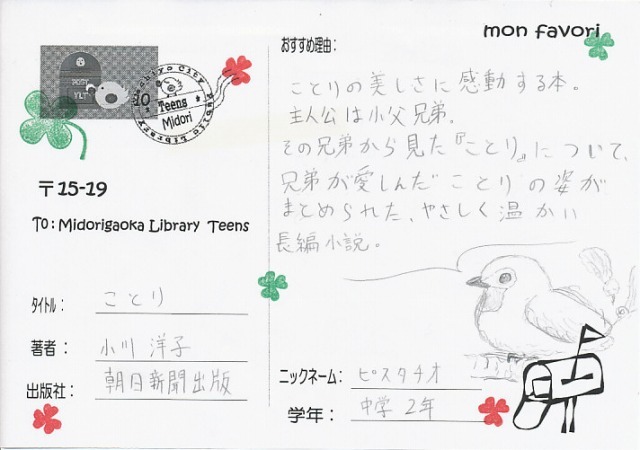 mon favori
POST
10
Teens
Midori
〒15-19
To: Midorigaoka Library Teens
タイトル: ことり
著者: 小川 洋子
出版社: 朝日新聞出版
おすすめ理由:
ことりの美しさに感動する本。
主人公は小父兄弟。
その兄弟から見た『ことり』について、
兄弟が愛しんだ ことり の姿が
まとめられた、やさしく温かい
長編小説。
ニックネーム: ピスタチオ
学年: 中学2年